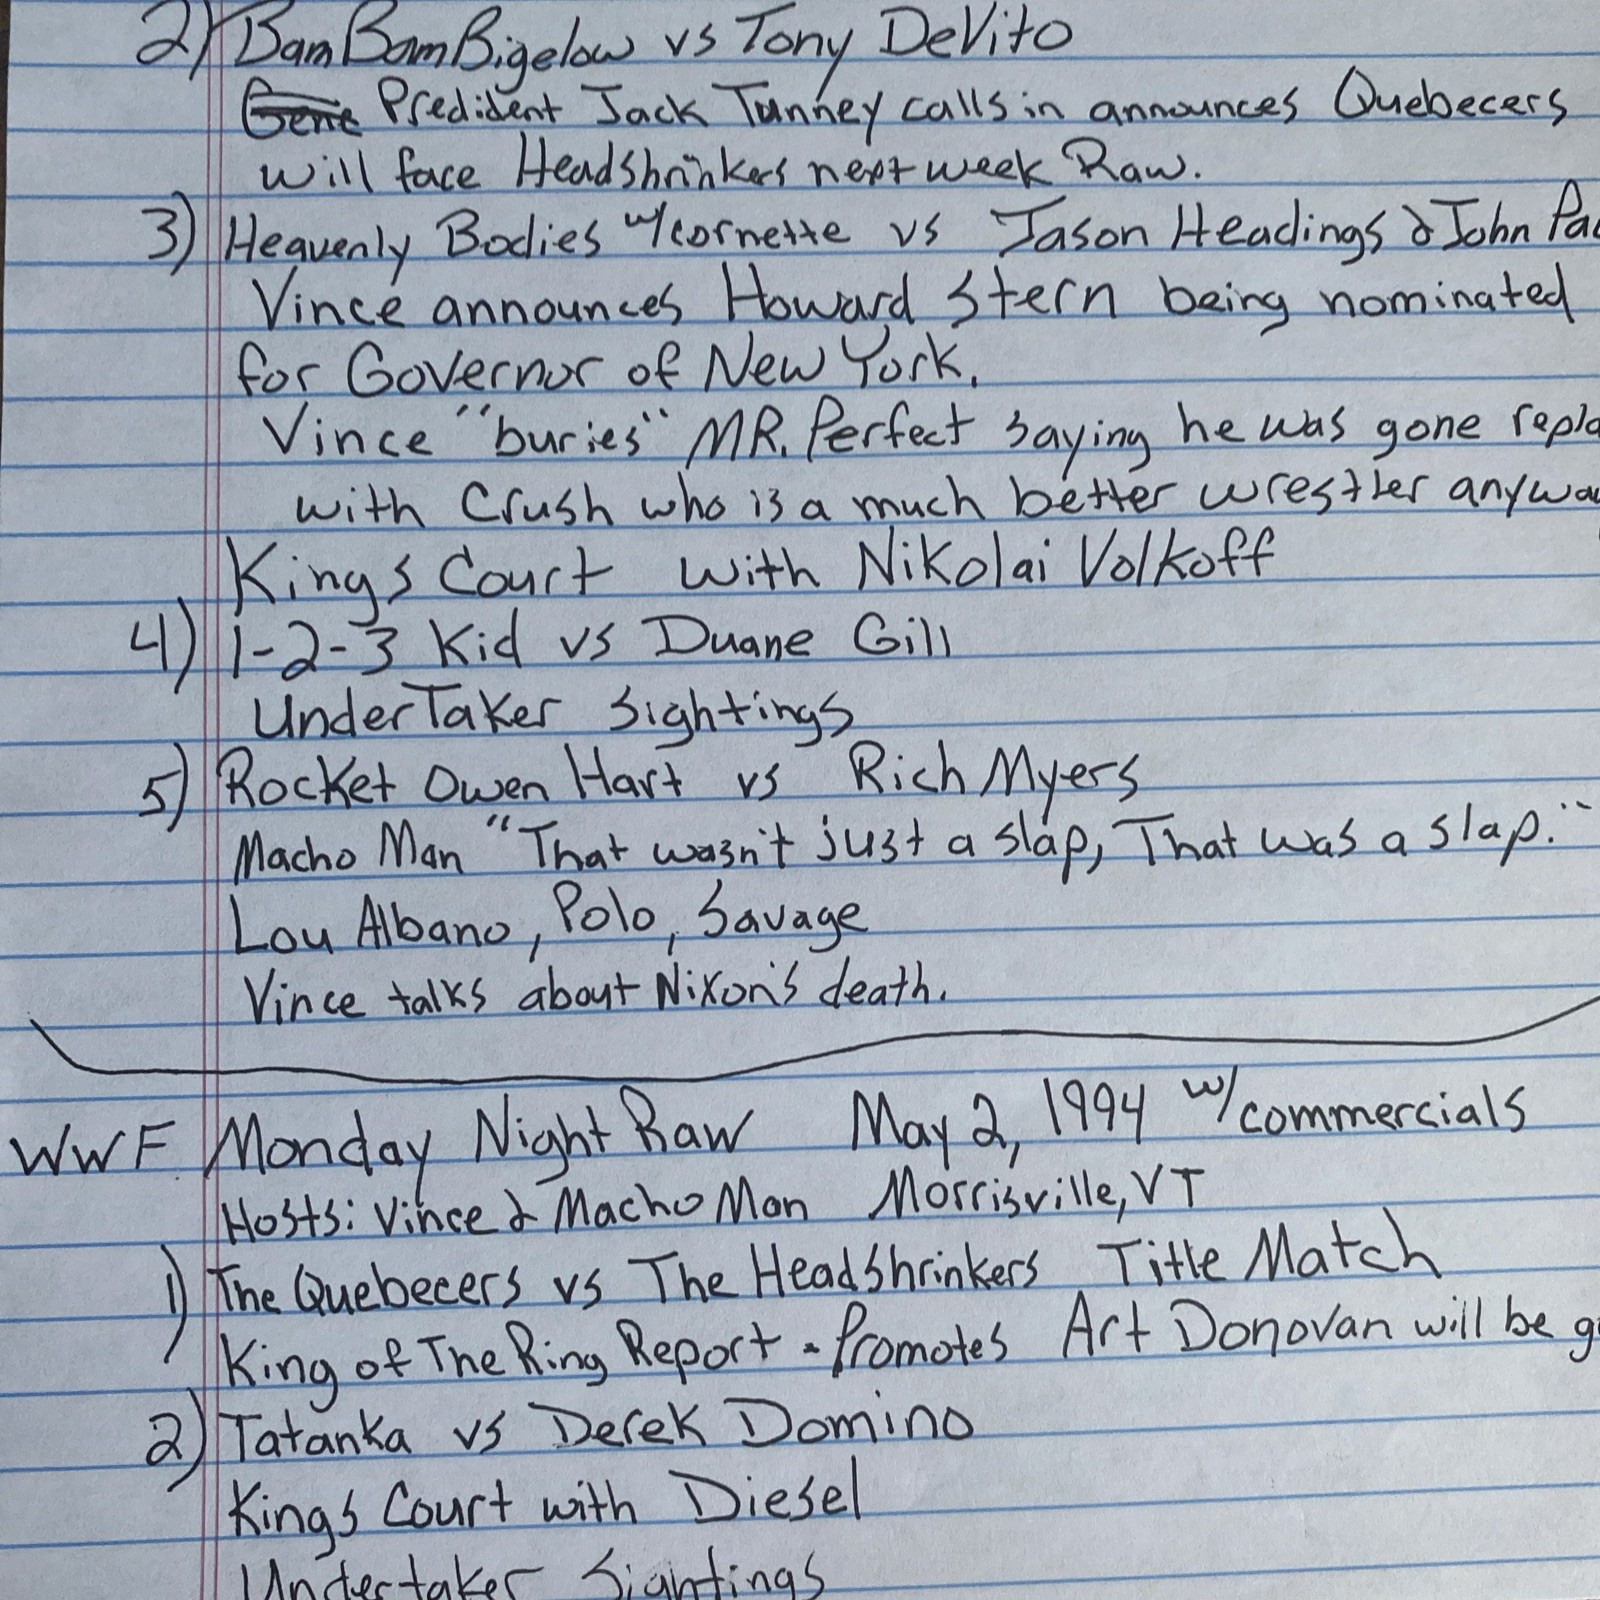 2) Bam Bam Bigelow vs Tony DeVito
Gene Predident Jack Tunney calls in announces Quebecers
will face Headshrinkers next week Raw.
3) Heavenly Bodies w/cornette vs Jason Headings & John Pa
Vince announces Howard Stern being nominated
for Governor of New York.
Vince "buries" MR. Perfect saying he was gone repla
with Crush who is a much better wrestler anywa
Kings Court with Nikolai Volkoff
4) 1-2-3 Kid vs Duane Gill
UnderTaker Sightings
5) Rocket Owen Hart vs Rich Myers
Macho Man "That wasn't just a slap, That was a slap."
Lou Albano, Polo, Savage
Vince talks about Nixon's death.
WWF Monday Night Raw May 2, 1994 w/commercials
Hosts: Vince & Macho Man Morrisville, VT
1) The Quebecers vs The Headshrinkers Title Match
King of The Ring Report - Promotes Art Donovan will be g
2) Tatanka vs Derek Domino
Kings Court with Diesel
Undertaker Sightings